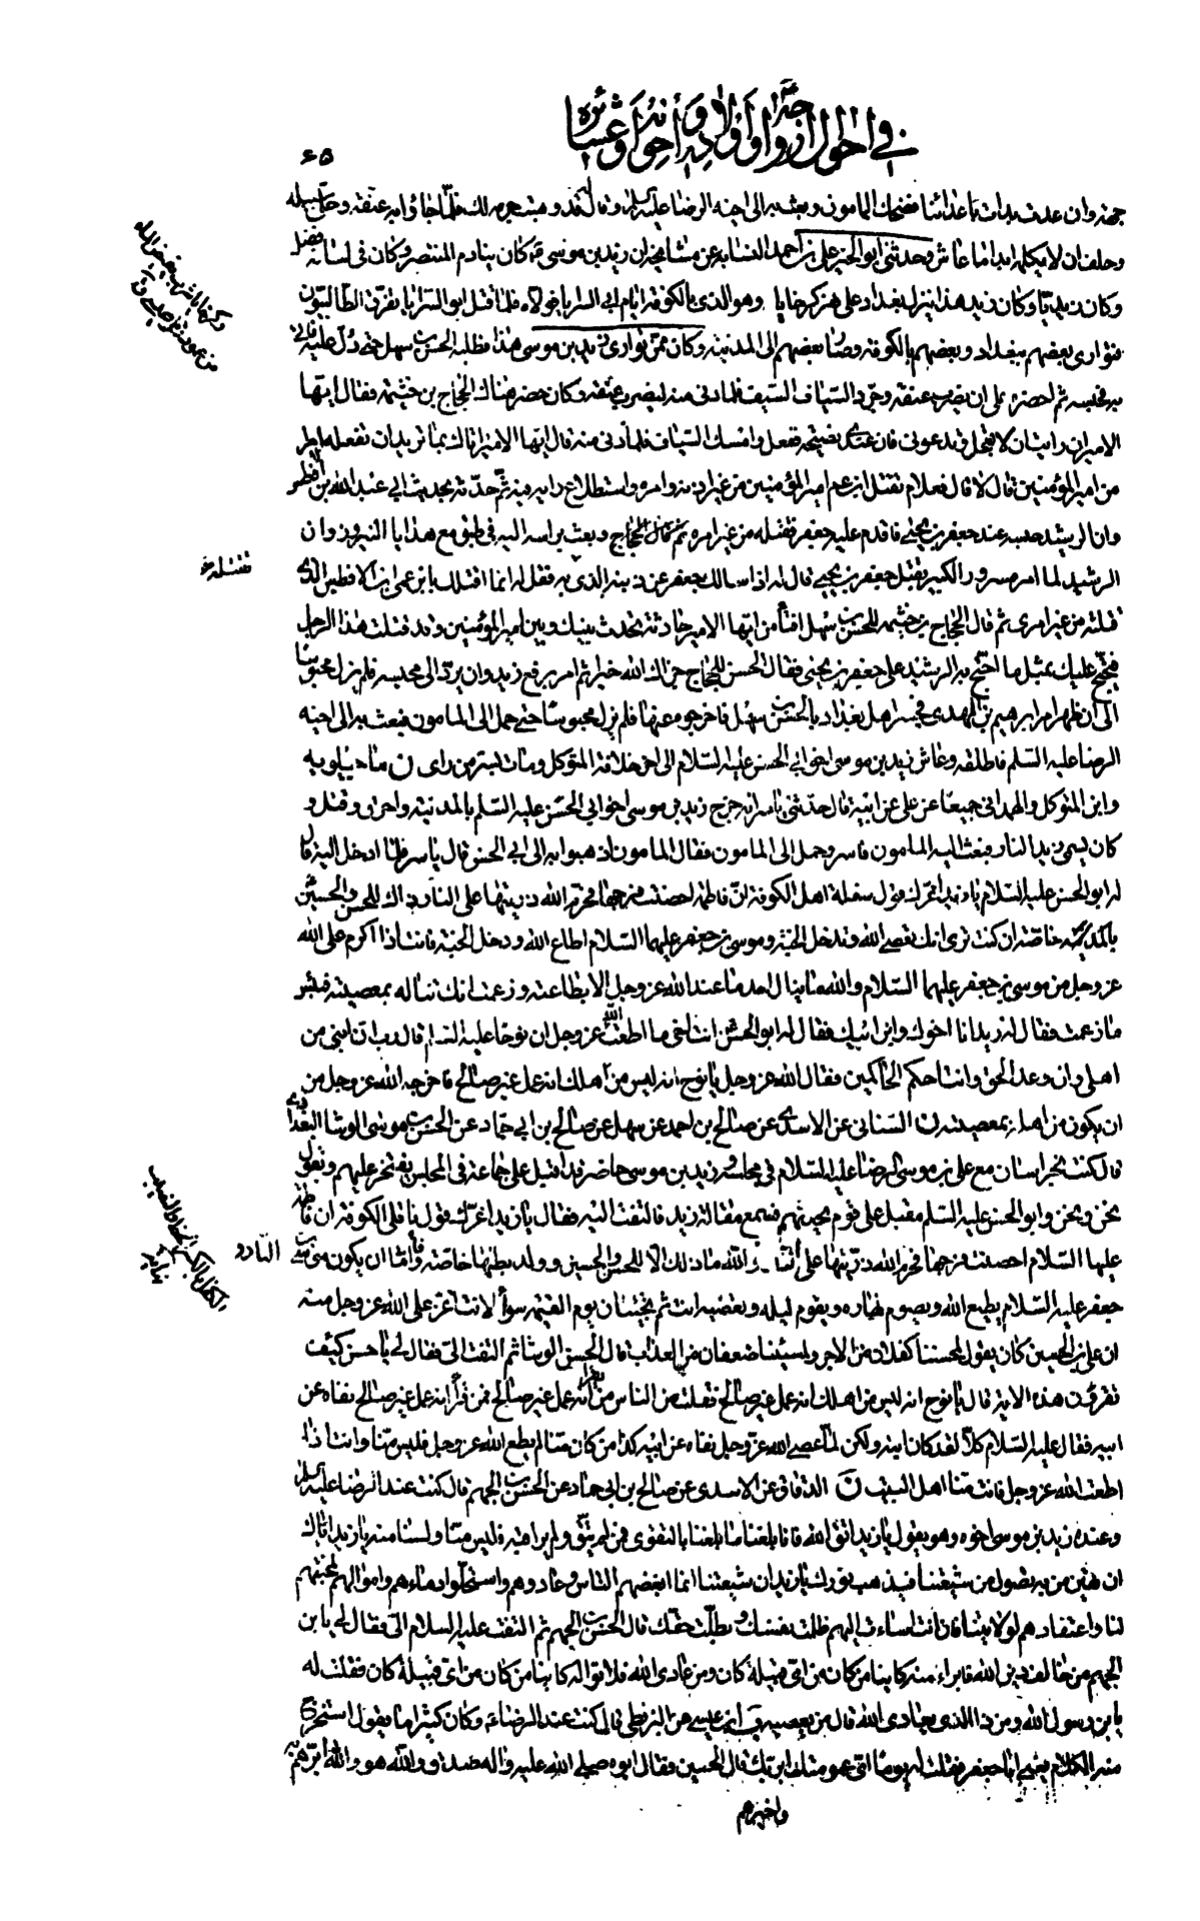 في احوال ازواجه و اولاده و اخوانه و عشائره
٤٥
جهنم وان عدت بدات باعدائنا فضحك المامون وبعث به الى اخيه الرضا عليه السلم وقال قد وهبت جرمه لك فلما جاؤا به عنفه وخلى سبيله
وحلف ان لا يكلمه ابدا ما عاش وحدثني ابو الخير علي بن احمد النسابة عن مشايخه ان زيد بن موسى كان ينادم المنتصر وكان في لسانه فضل
وكان زيديا وكان زيد هذا ينزل بغداد على نهر كرخايا وهو الذي بالكوفة ايام ابي السرايا فولاه فلما قتل ابو السرايا تفرق الطالبيون
فتوارى بعضهم ببغداد وبعضهم بالكوفة وصار بعضهم الى المدينة وكان ممن توارى زيد بن موسى هذا فطلبه الحسن بن سهل حتى دل عليه فاتي
به فحبسه ثم احضره على ان يضرب عنقه وجرد السياف السيف فلما دنى منه ليضرب عنقه وكان حضر هناك الحجاج بن خيثمة فقال ايها
الامير ان رايت ان لا تعجل وتدعوني فان عندي نصيحة ففعل وامسك السياف فلما دنى منه قال ايها الامير اتاك بما تريد ان تفعله امر
من امير المؤمنين قال لا قال فعلام تقتل ابن عم امير المؤمنين من غير اذنه وامره واستطلاع رايه فيه ثم حدثه بحديث ابي عبد الله بن افطس
وان الرشيد حبسه عند جعفر بن يحيى فاقدم عليه جعفر فقتله من غير امره ثم قال الحجاج وبعث براسه اليه في طبق مع هدايا النيروز وان
الرشيد لما امر مسرور الكبير بقتل جعفر بن يحيى قال له اذا سالك جعفر عن ذنبه الذي به فقل له انما اقتلك بابن عمي ابن الافطس الذي
قتلته من غير امري ثم قال الحجاج بن خيثمة للحسن بن سهل افتامن ايها الامير حادثة تحدث بينك وبين امير المؤمنين وقد قتلت هذا الرجل
فيحتج عليك بمثل ما احتج به الرشيد على جعفر بن يحيى فقال الحسن للحجاج جزاك الله خيرا ثم امر برفع زيد وان يرد الى محبسه فلم يزل محبوسا
الى ان ظهر امر ابرهيم بن المهدي فجسر اهل بغداد بالحسن بن سهل فاخرجوه عنها فلم يزل محبوسا حتى حمل الى المامون فبعث به الى اخيه
الرضا عليه السلم فاطلقه وعاش زيد بن موسى اخو ابي الحسن عليه السلام الى اخر خلافة المتوكل ومات بسر من راى ن ماجيلويه
وابن المتوكل والهمداني جميعا عن علي عن ابيه قال حدثني ياسر انه خرج زيد بن موسى اخو ابي الحسن عليه السلم بالمدينة واحرق وقتل و
كان يسمى زيد النار فبعث اليه المامون فاسر وحمل الى المامون فقال المامون اذهبوا به الى ابي الحسن قال ياسر فلما ادخل اليه قال
له ابو الحسن عليه السلام يا زيد اغرك قول سفلة اهل الكوفة ان فاطمة احصنت فرجها فحرم الله ذريتها على النار ذاك للحسن والحسين
خاصة ان كنت ترى انك تعصي الله وتدخل الجنة وموسى بن جعفر عليهما السلام اطاع الله ودخل الجنة فانت اذا اكرم على الله
عز وجل من موسى بن جعفر عليهما السلام والله ما ينال احد ما عند الله عز وجل الا بطاعته وزعمت انك تناله بمعصيته فبئس
ما زعمت فقال له زيد انا اخوك وابن ابيك فقال له ابو الحسن انت اخي ما اطعت الله عز وجل ان نوحا عليه السلم قال رب ان ابني من
اهلي وان وعدك الحق وانت احكم الحاكمين فقال الله عز وجل يا نوح انه ليس من اهلك انه عمل غير صالح فاخرجه الله عز وجل من
ان يكون من اهله بمعصيته ن السناني عن الاسدي عن صالح بن احمد عن سهل عن صالح بن ابي حماد عن الحسن بن موسى الوشا البغدادي
قال كنت بخراسان مع علي بن موسى الرضا عليه السلام في مجلسه وزيد بن موسى حاضر قد اقبل على جماعة في المجلس يفتخر عليهم ويقول
نحن ونحن وابو الحسن عليه السلم مقبل على قوم يحدثهم فسمع مقالة زيد فالتفت اليه فقال يا زيد اغرك قول ناقلي الكوفة ان فاطمة
عليها السلام احصنت فرجها فحرم الله ذريتها على النار والله ما ذلك الا للحسن والحسين وولد بطنها خاصة فاما ان يكون موسى بن
جعفر عليه السلام يطيع الله ويصوم نهاره ويقوم ليله وتعصيه انت ثم تجيئان يوم القيمة سواء لانت اعز على الله عز وجل منه
ان علي بن الحسين كان يقول لمحسننا كفلان من الاجر ولمسيئنا ضعفان من العذاب قال الحسن الوشا ثم التفت الي فقال لي يا حسن كيف
تقرؤن هذه الاية قال يا نوح انه ليس من اهلك انه عمل غير صالح فقلت من الناس من يقرا انه عمل غير صالح فمن قرا انه عمل غير صالح نفاه عن
ابيه فقال عليه السلام كلا لقد كان ابنه ولكن لما عصى الله عز وجل نفاه عن ابيه كذا من كان منا لم يطع الله عز وجل فليس منا وانت اذا
اطعت الله عز وجل فانت منا اهل البيت ن الدقاق عن الاسدي عن صالح بن ابي حماد عن الحسن بن الجهم قال كنت عند الرضا عليه السلم
وعنده زيد بن موسى اخوه وهو يقول يا زيد اتق الله فانا بلغنا ما بلغنا بالتقوى فمن لم يتق ولم يراقبه فليس منا ولسنا منه يا زيد اياك
ان تهين من به تصول من شيعتنا فيذهب نورك يا زيد ان شيعتنا انما ابغضهم الناس وعادوهم واستحلوا دماءهم واموالهم لمحبتهم
لنا واعتقادهم لولايتنا فان انت اسات اليهم ظلمت نفسك وبطلت حقك قال الحسن بن الجهم ثم التفت عليه السلام الي فقال لي يا بن
الجهم من خالف دين الله فابراء منه كاينا من كان من اي قبيلة كان ومن عادى الله فلا تواله كاينا من كان من اي قبيلة كان فقلت له
يا بن رسول الله ومن ذا الذي يعادي الله قال من يعصيه ب ابن عيسى عن البزنطي قال كنت عند الرضا ع وكان كثيرا ما يقول استخرج
منه الكلام يعني ابا جعفر فقلت له يوما اي عمومتك ابر بك قال الحسين فقال ابوه صلى الله عليه واله صدق والله هو والله ابرهم به
واخيرهم
فقتله ع
النار و